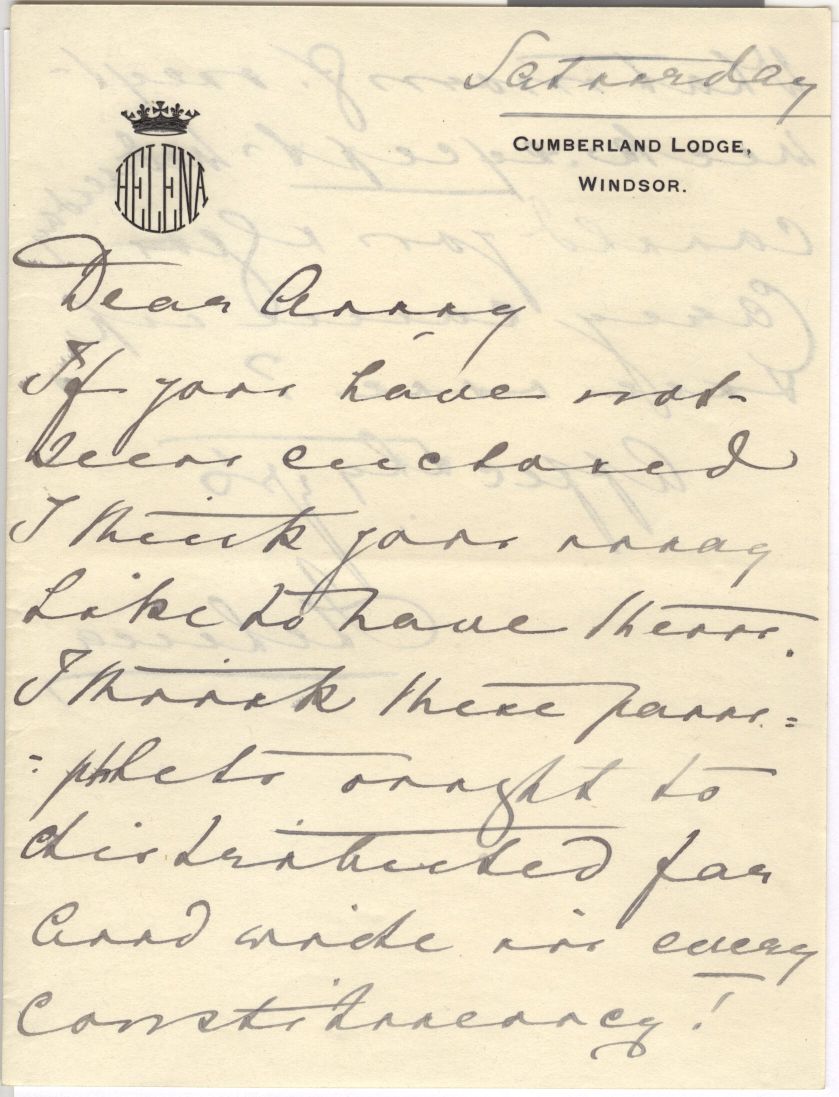 Saturday
HELENA
CUMBERLAND LODGE,
WINDSOR.
Dear Anny
If you have not
seen enclosed
I think you may
like to have them.
I think these pam=
=phlets ought to
distributed far
and wide in every
constituency!